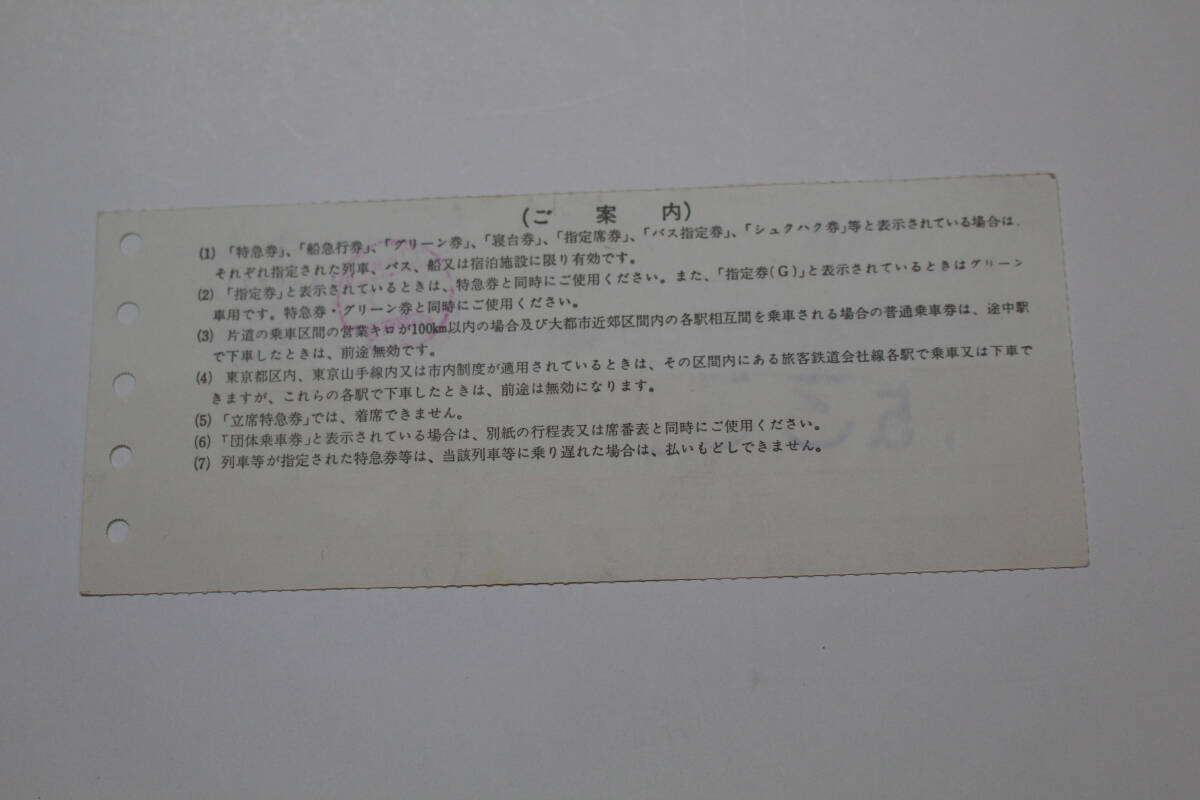 (ご案内)
(1) 「特急券」、「船急行券」、「グリーン券」、「寝台券」、「指定席券」、「バス指定券」、「シュクハク券」等と表示されている場合は、
それぞれ指定された列車、バス、船又は宿泊施設に限り有効です。
(2) 「指定券」と表示されているときは、特急券と同時にご使用ください。また、「指定券(G)」と表示されているときはグリーン
車用です。特急券・グリーン券と同時にご使用ください。
(3) 片道の乗車区間の営業キロが100㎞以内の場合及び大都市近郊区間内の各駅相互間を乗車される場合の普通乗車券は、途中駅
で下車したときは、前途無効です。
(4) 東京都区内、東京山手線内又は市内制度が適用されているときは、その区間内にある旅客鉄道会社線各駅で乗車又は下車で
きますが、これらの各駅で下車したときは、前途は無効になります。
(5) 「立席特急券」では、着席できません。
(6) 「団体乗車券」と表示されている場合は、別紙の行程表又は席番表と同時にご使用ください。
(7) 列車等が指定された特急券等は、当該列車等に乗り遅れた場合は、払いもどしできません。